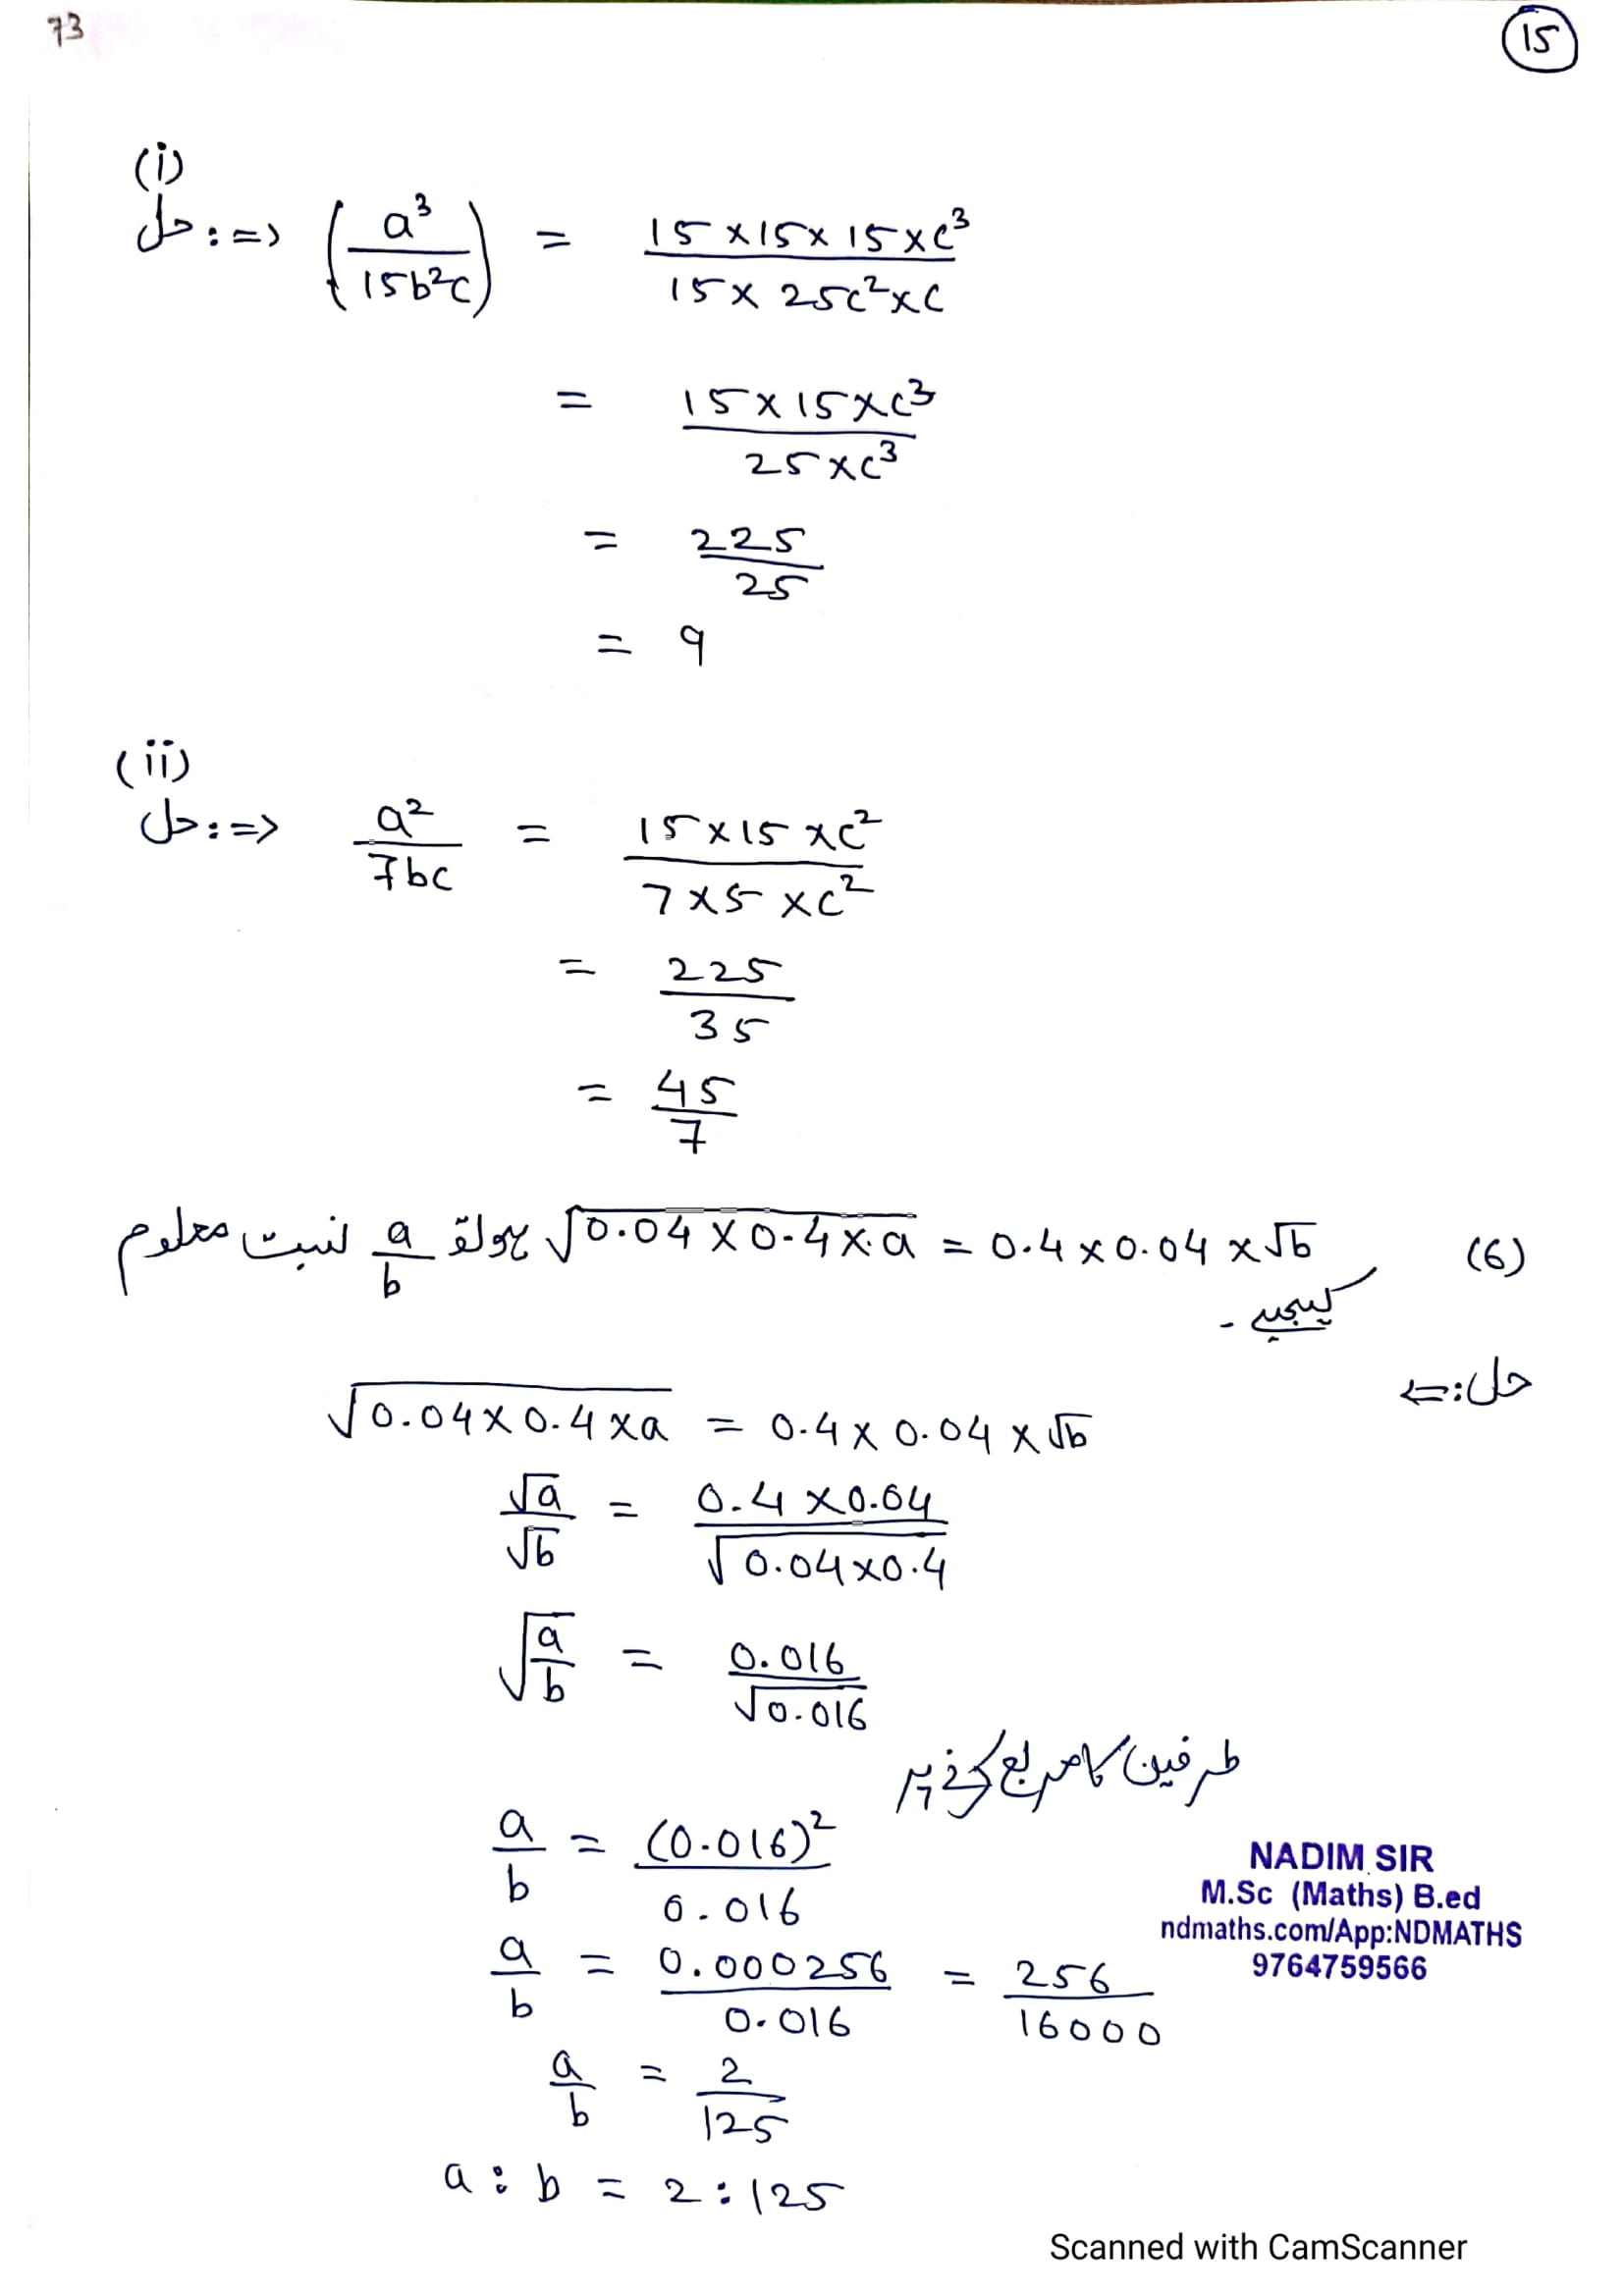 73
15
(i)
حل :=> (a³/15b²c) = 15×15×15×c³/15×25c²×c
= 15×15×c³/25×c³
= 225/25
= 9
(ii)
حل :=> a²/7bc = 15×15×c²/7×5×c²
= 225/35
= 45/7
(6) √0.04×0.4×a = 0.4×0.04×√b ہو تو a/b نسبت معلوم
کیجیے۔
حل :⇐
√0.04×0.4×a = 0.4×0.04×√b
√a/√b = 0.4×0.04/√0.04×0.4
√a/b = 0.016/√0.016
طرفین کا مربع کرنے پر
a/b = (0.016)²/0.016
a/b = 0.000256/0.016 = 256/16000
a/b = 2/125
a : b = 2 : 125
NADIM SIR
M.Sc (Maths) B.ed
ndmaths.com/App:NDMATHS
9764759566
Scanned with CamScanner